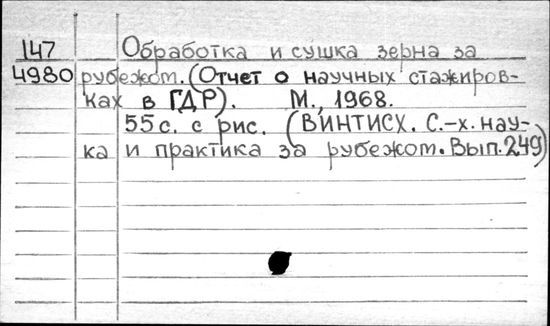 147 Обработка и сушка зерна за
4980 рубежот. (Отчет о научных стажиров-
ках в ГДР). М., 1968.
55 с. с рис. (ВИНТИСХ. С.-х. нау-
ка и практика за рубежот. Вып. 249)